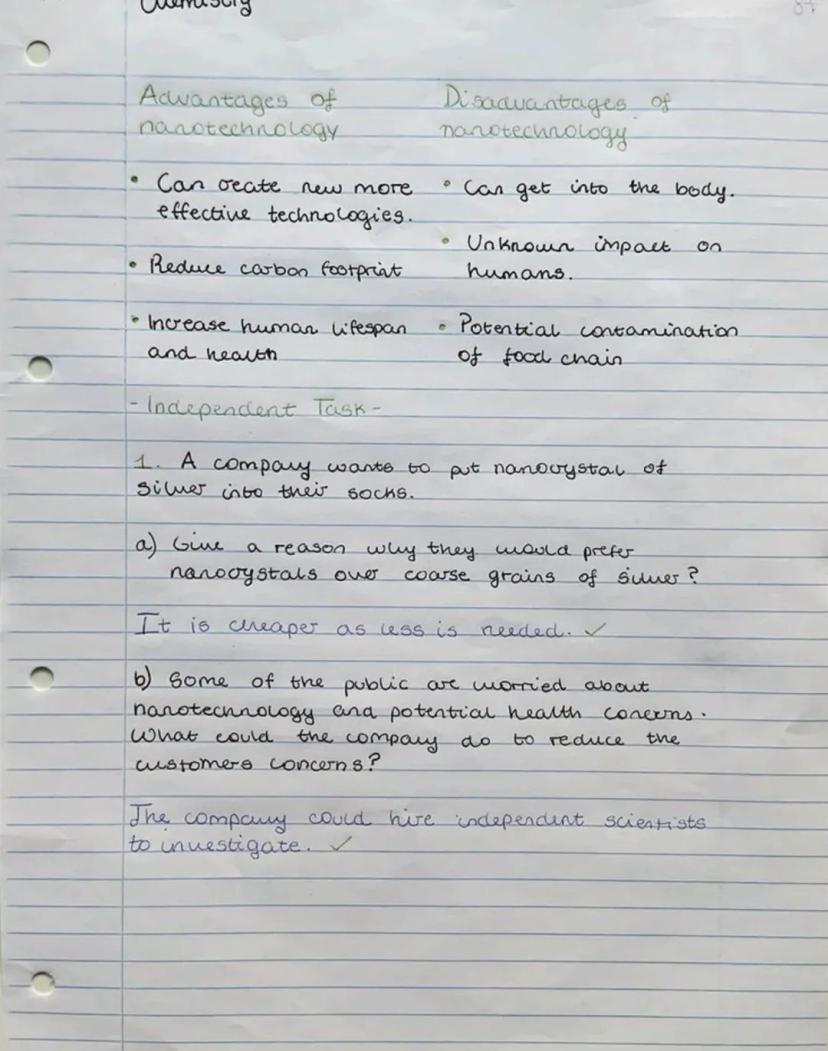 Chemistry
87
Advantages of
nanotechnology
• Can create new more
effective technologies.
• Reduce carbon footprint
• Increase human lifespan
and health
Disadvantages of
nanotechnology
• Can get into the body.
• Unknown impact on
humans.
• Potential contamination
of food chain
- Independent Task -
1. A company wants to put nanocrystal of
silver into their socks.
a) Give a reason why they would prefer
nanocrystals over coarse grains of silver?
It is cheaper as less is needed. ✓
b) Some of the public are worried about
nanotechnology and potential health concerns.
What could the company do to reduce the
customers concerns?
The company could hire independent scientists
to investigate. ✓